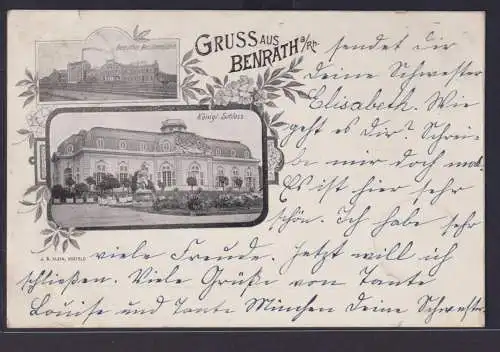 GRUSS AUS
BENRATH a/Rh.
Benrather Maschinenfabrik
Königl. Schloss
J. B. KLEIN, KREFELD
sendet dir
deine Schwester
Elisabeth. Wie
geht es dir? Schrei-
be mir doch mal.
Es ist hier sehr
schön. Ich habe sehr
viele Freude. Jetzt will ich
schließen. Viele Grüße von Tante
Louise und Tante Minchen Deine Schwester